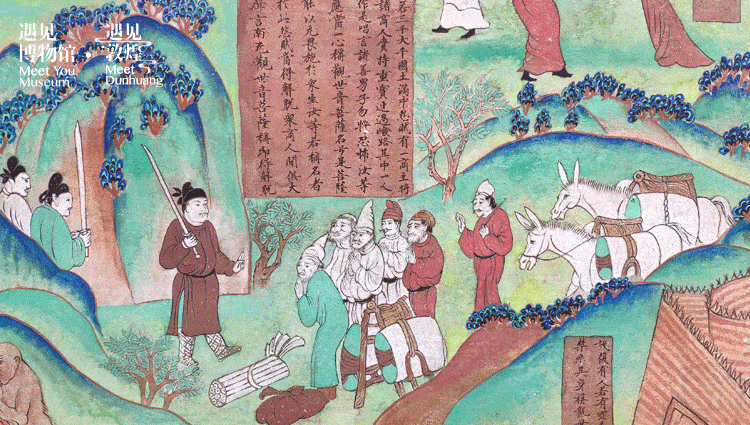 遇见
博物馆
Meet You
Museum
遇见
敦煌
Meet
Dunhuang
三千大千國土滿中怨賊有一商主將
諸商人賷持重寶經過嶮路其中一人
作是唱言諸善男子勿得恐怖汝等
應當一心稱觀世音菩薩名号是菩薩
能以无畏施於衆生汝等若稱名者
於此怨賊當得解脫衆商人聞俱發
聲言南无觀世音菩薩稱其名故即得解脫
設復有人若有罪
其身稱觀世